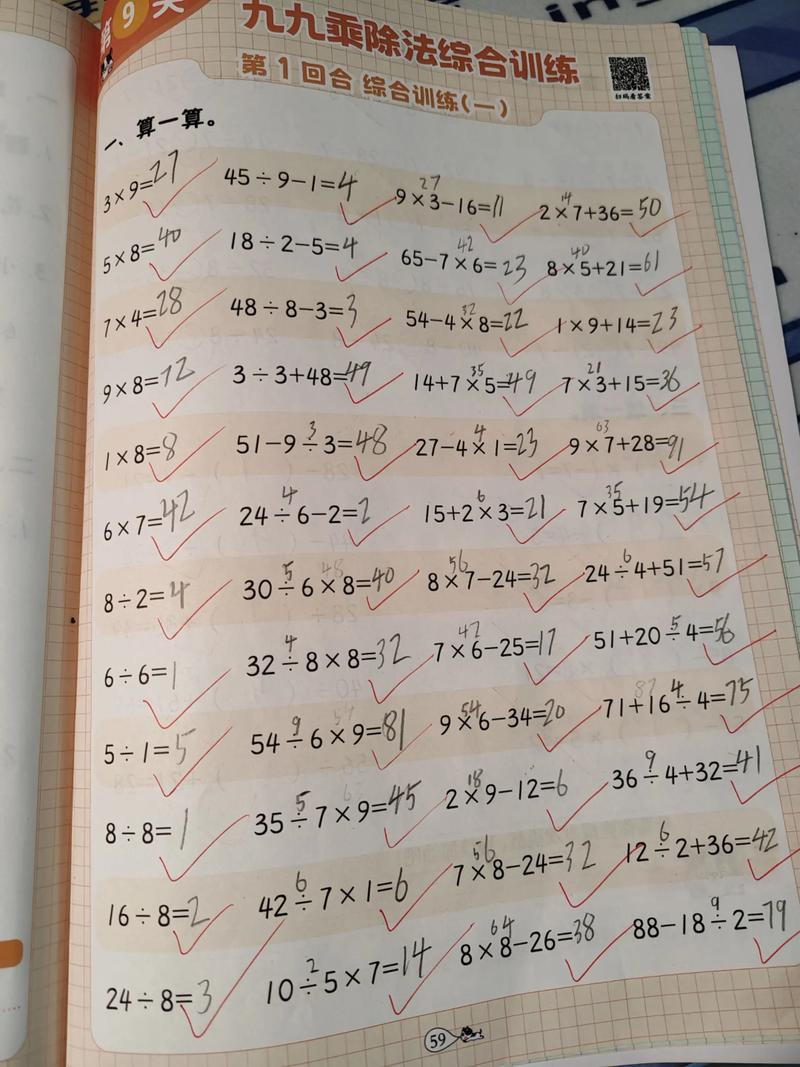 第9天
九九乘除法综合训练
第1回合 综合训练(一)
扫码看答案
一、算一算。
3×9=27 45÷9-1=4 27 9×3-16=11 14 2×7+36=50
5×8=40 18÷2-5=4 42 65-7×6=23 40 8×5+21=61
7×4=28 48÷8-3=3 32 54-4×8=22 1×9+14=23
9×8=72 3÷3+48=49 35 14+7×5=49 21 7×3+15=36
1×8=8 3 51-9÷3=48 4 27-4×1=23 63 9×7+28=91
6×7=42 4 24÷6-2=2 6 15+2×3=21 35 7×5+19=54
8÷2=4 5 48 30÷6×8=40 56 8×7-24=32 6 24÷4+51=57
6÷6=1 4 32÷8×8=32 42 7×6-25=17 5 51+20÷4=56
5÷1=5 9 54 54÷6×9=81 54 9×6-34=20 87 4 71+16÷4=75
8÷8=1 5 63 35÷7×9=45 18 2×9-12=6 9 36÷4+32=41
16÷8=2 6 42÷7×1=6 56 7×8-24=32 6 12÷2+36=42
24÷8=3 2 10÷5×7=14 64 8×8-26=38 9 88-18÷2=79
59